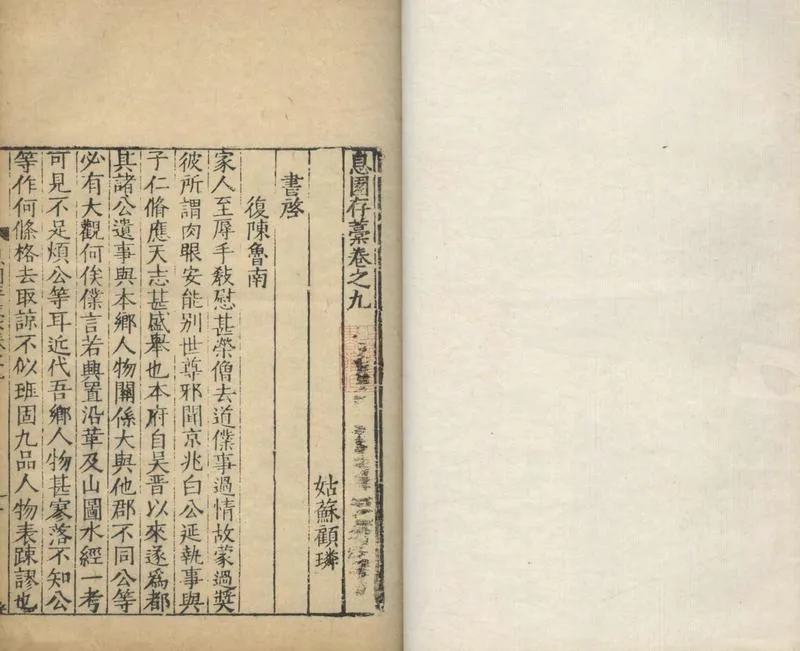 息園存藁卷之九
姑蘇顧璘
書啓
復陳魯南
家人至辱手敎慰甚榮僧去道僕事過情故蒙過奬
彼所謂肉眼安能別世尊邪聞京兆白公延執事與
子仁脩應天志甚盛舉也本府自吳晉以來遂爲都
其諸公遺事與本鄉人物關係大與他郡不同公等
必有大觀何俟僕言若典置沿革及山圖水經一考
可見不足煩公等耳近代吾鄉人物甚寥落不知公
等作何條格去取諒不似班固九品人物表踈謬也